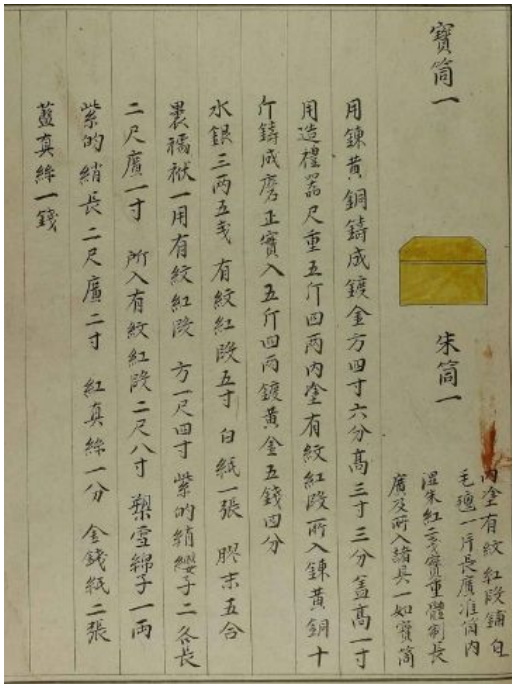 寶筒一
朱筒一
內塗有紋紅段鋪白
毛氊一片長廣准筒內
濕朱紅二戔實重體制長
廣及所入諸具一如寶筒
用鍊黃銅鑄成鍍金方四寸六分高三寸三分盖高一寸
用造禮器尺重五斤四兩內塗有紋紅段所入鍊黃銅十
斤鑄成磨正實入五斤四兩鍍黃金五錢四分
水銀三兩五戔 有紋紅段五寸 白紙一張 膠末五合
裹襦袱一用有紋紅段 方一尺四寸 紫的綃纓子二各長
二尺廣一寸 所入有紋紅段二尺八寸 槊雪綿子一兩
紫的綃長二尺廣二寸 紅真絲一分 金錢紙二張
藍真絲一錢